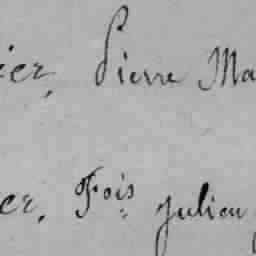 ier, Pierre Ma
er, Fois Julien